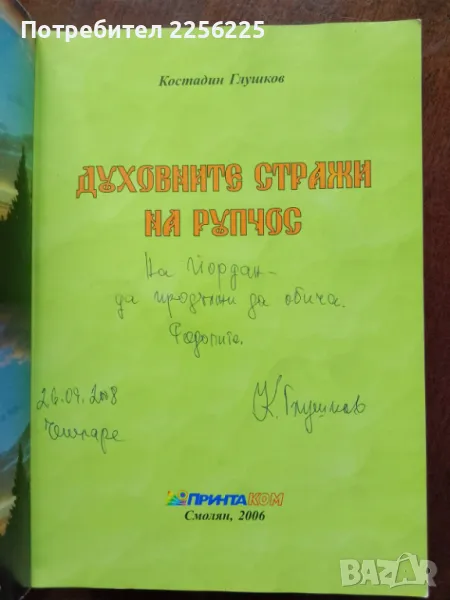 Потребител 2256225
Костадин Глушков
ДУХОВНИТЕ СТРАЖИ
НА РУПЧОС
На Йордан -
да продължи да обича
Родопите.
26.09.2008
К. Глушков
ПРИНТАКОМ
Смолян, 2006
BAZAR